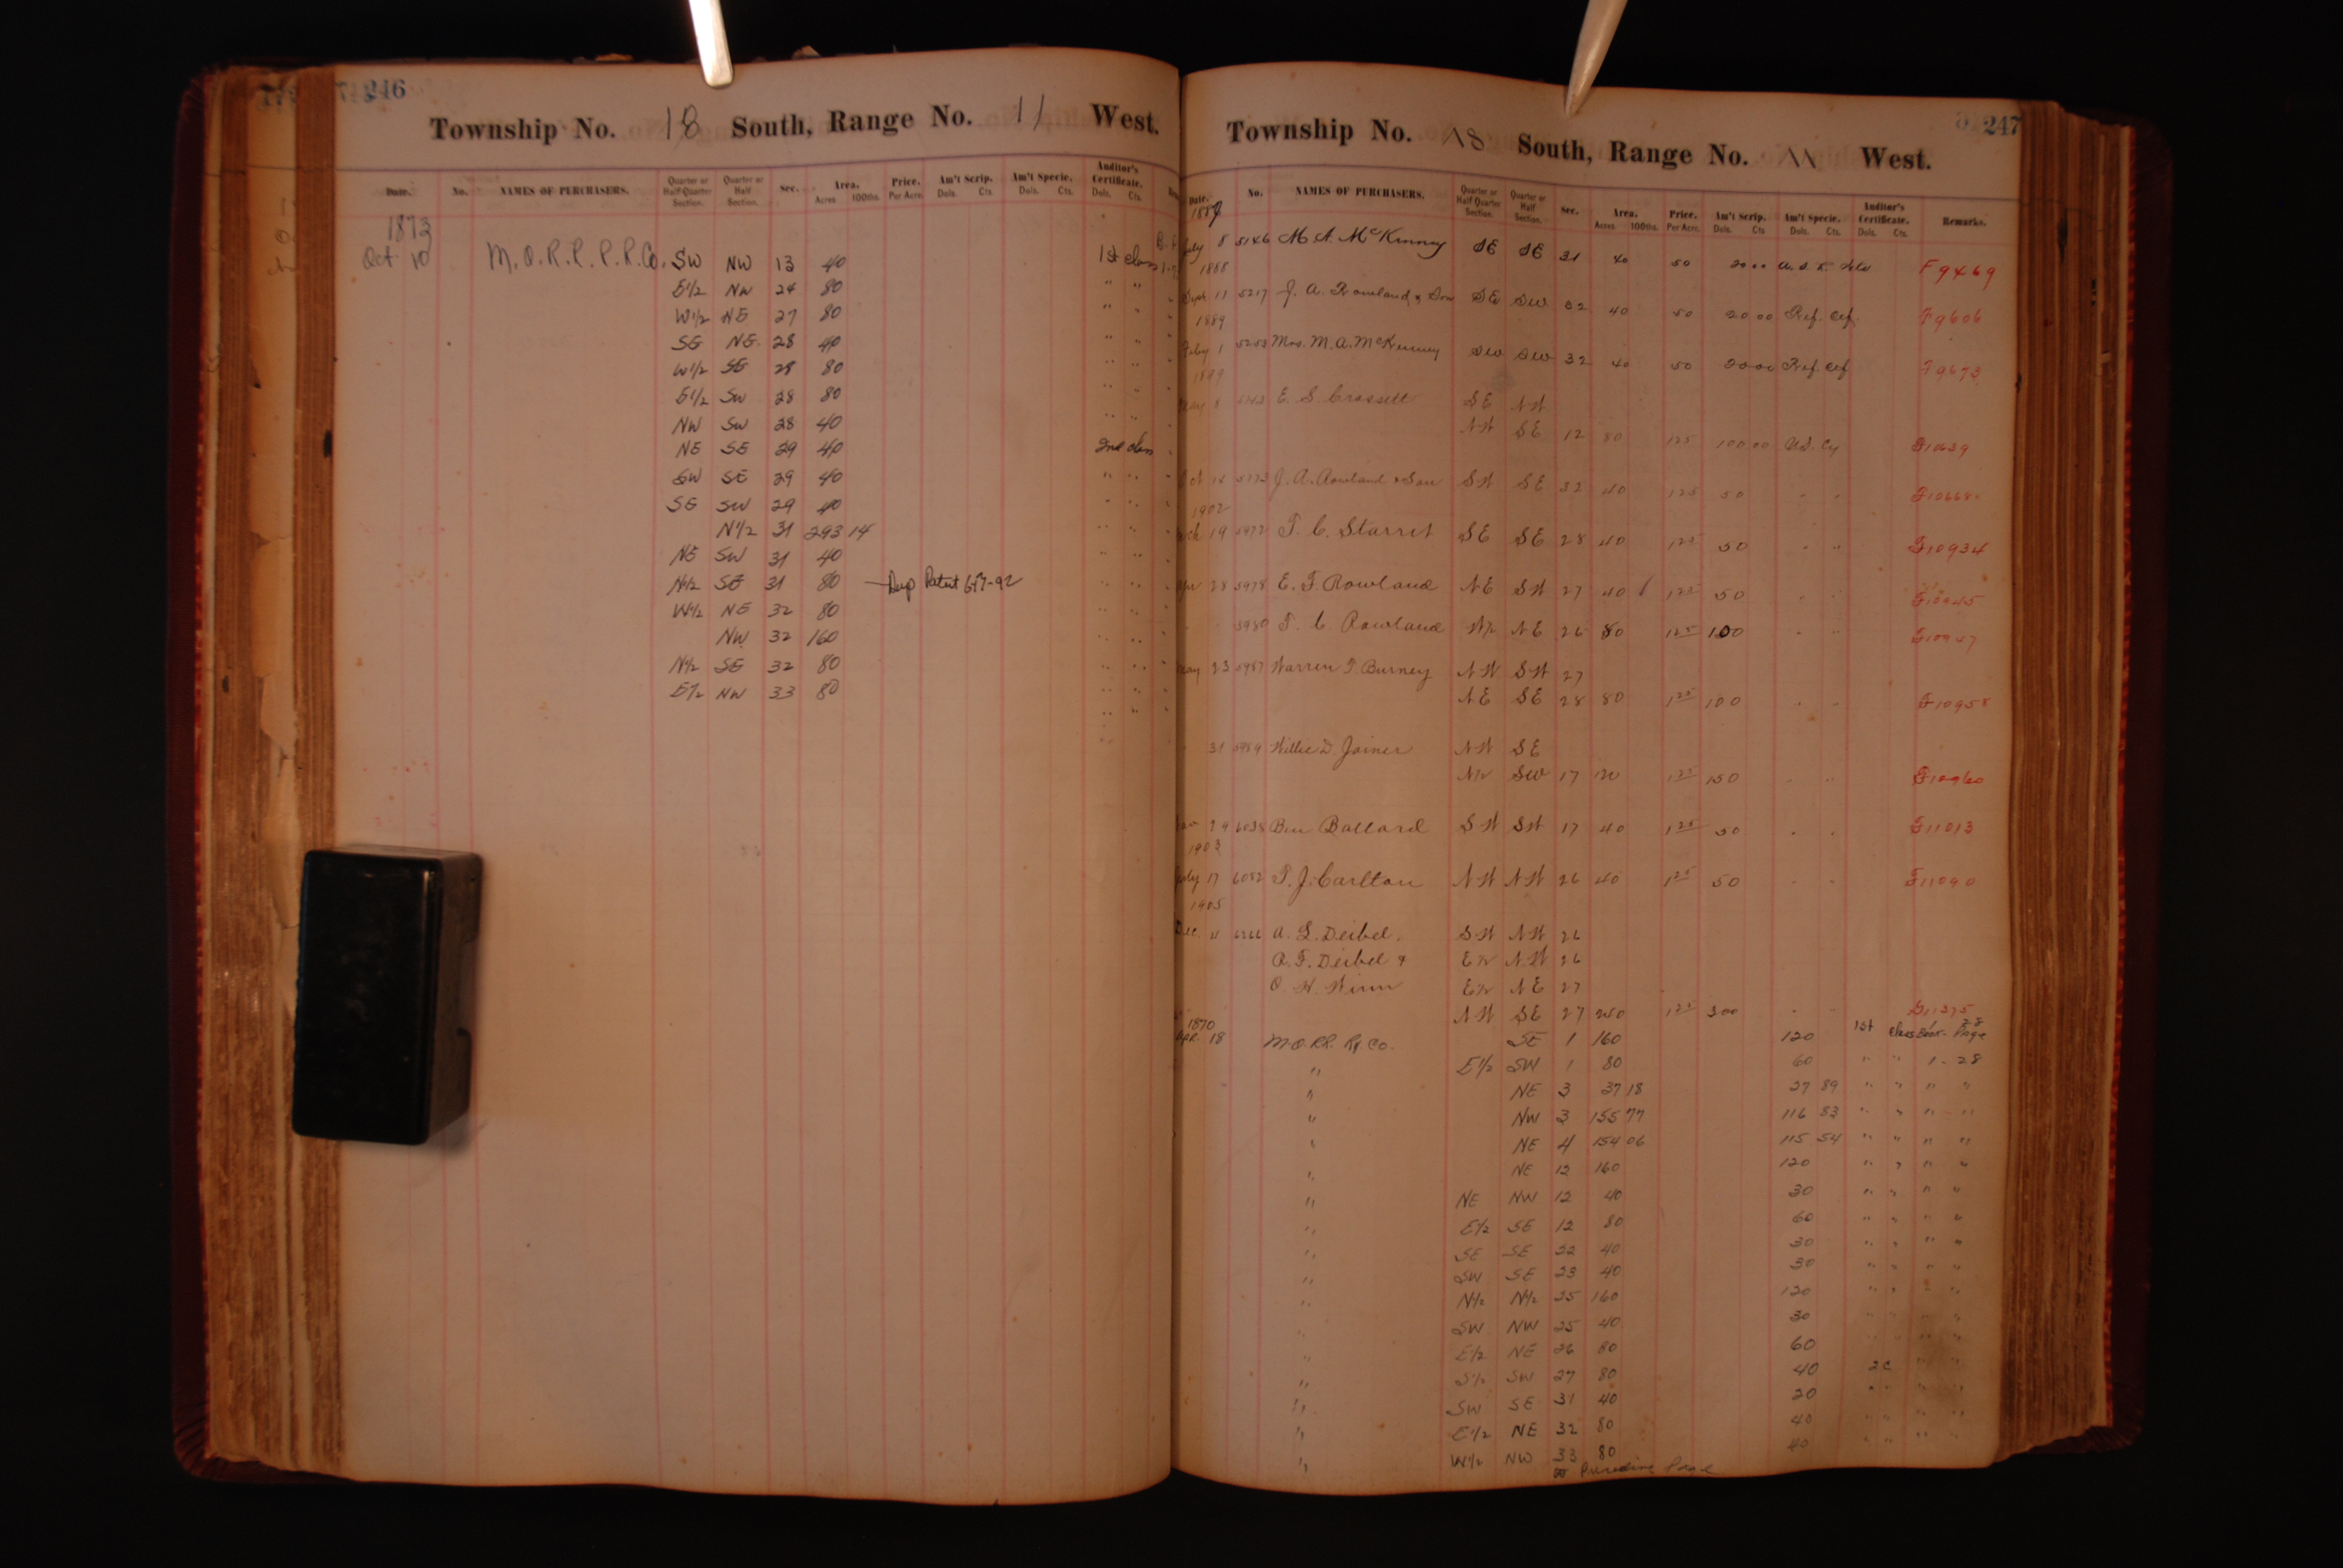 246
Township No. 18 South, Range No. 11 West.
Date. No. NAMES OF PURCHASERS. Quarter or Half Quarter Section. Quarter or Half Section. Sec. Area. Acres 100ths. Price. Per Acre. Am't Scrip. Dols. Cts Am't Specie. Dols. Cts. Auditor's Certificate. Dols. Cts.
1873
Oct. 10 M.O.R.R.R.R.Co. SW NW 13 40 1st class
E1/2 NW 24 80 " "
W1/2 NE 27 80 " "
SE NE. 28 40 " "
W1/2 SE 28 80 " "
E1/2 SW 28 80 " "
NW SW 28 40 " "
NE SE 29 40 2nd class
SW SE 29 40 " "
SE SW 29 40 " "
N1/2 31 293 14 " "
NE SW 31 40 " "
N1/2 SE 31 80 Dup Patent " "
W1/2 NE 32 80 " "
NW 32 160 " "
N1/2 SE 32 80 " "
E1/2 NW 33 80 " "
247
Township No. 18 South, Range No. 11 West.
Date. No. NAMES OF PURCHASERS. Quarter or Half Quarter Section. Quarter or Half Section. Sec. Area. Acres 100ths. Price. Per Acre. Am't Scrip. Dols. Cts Am't Specie. Dols. Cts. Auditor's Certificate. Dols. Cts. Remarks.
July 8 5146 M A. McKinney SE SE 31 40 50 20 00 F9469
1888
Sept 11 5217 J. A. Rowland & Son SE SW 32 40 50 20 00 Ref. Cef. F9606
1889
Feby 1 5253 Mrs. M. A. McKinney SW SW 32 40 50 20 00 Ref. Cef F9673
1899
May 8 E. S. Crossett SE NW
NW SE 12 80 125 100 00 U.S. Cy F10639
Oct 5773 J. A. Rowland & Son SW SE 32 40 125 50 " " F10668
1902
Mch 19 5972 T. C. Starret SE SE 28 40 125 50 " " F10934
Apr 28 5978 E. F. Rowland NE SW 27 40 125 50 " " F10945
5980 T. C. Rowland W1/2 NE 26 80 125 100 " " F10947
May 23 5987 Warren T. Burney NW SW 27
NE SE 28 80 125 100 " " F10958
31 5989 Willie D. Joiner NW SE
N1/2 SW 17 120 125 150 " " F10960
29 6038 Ben Ballard SW SW 17 40 125 50 " " F11013
1903
July 17 6082 T. J. Carlton NW NW 26 40 125 50 " " F11090
1905
Dec. 11 A. L. Deibel. SW NW 26
A. F. Deibel & E1/2 NW 26
O. W. Winn E1/2 NE 27
NW SE 27 240 125 300 " " F11375
1870
Apr. 18 M.O.RR. Ry. Co. SE 1 160 120 1st class Book Page
" E1/2 SW 1 80 60 " " 1 - 28
" NE 3 37 18 27 89 " " " "
" NW 3 155 77 116 83 " " " "
" NE 4 154 06 115 54 " " " "
" NE 12 160 120 " " " "
" NE NW 12 40 30 " " " "
" E1/2 SE 12 80 60 " " " "
" SE SE 22 40 30 " " " "
" SW SE 23 40 30 " " " "
" N1/2 N1/2 25 160 120 " " " "
" SW NW 25 40 30 " " " "
" E1/2 NE 26 80 60 " " " "
" S1/2 SW 27 80 40 2c " "
" SW SE 31 40 20 " " " "
" E1/2 NE 32 80 40 " " " "
" W1/2 NW 33 80 40 " " " "
Preceding Page